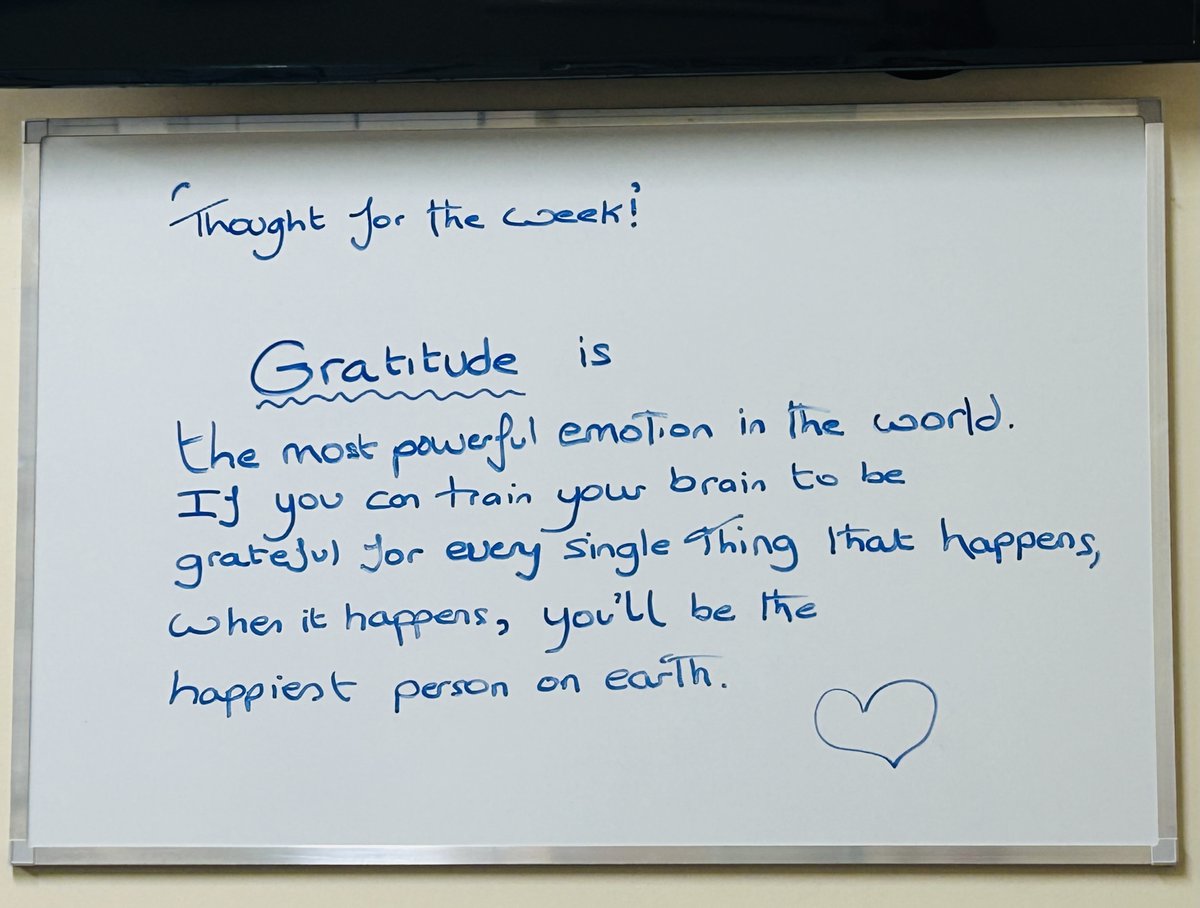 'Thought for the week!'
Gratitude is
the most powerful emotion in the world.
If you can train your brain to be
grateful for every single thing that happens,
when it happens, you'll be the
happiest person on earth.